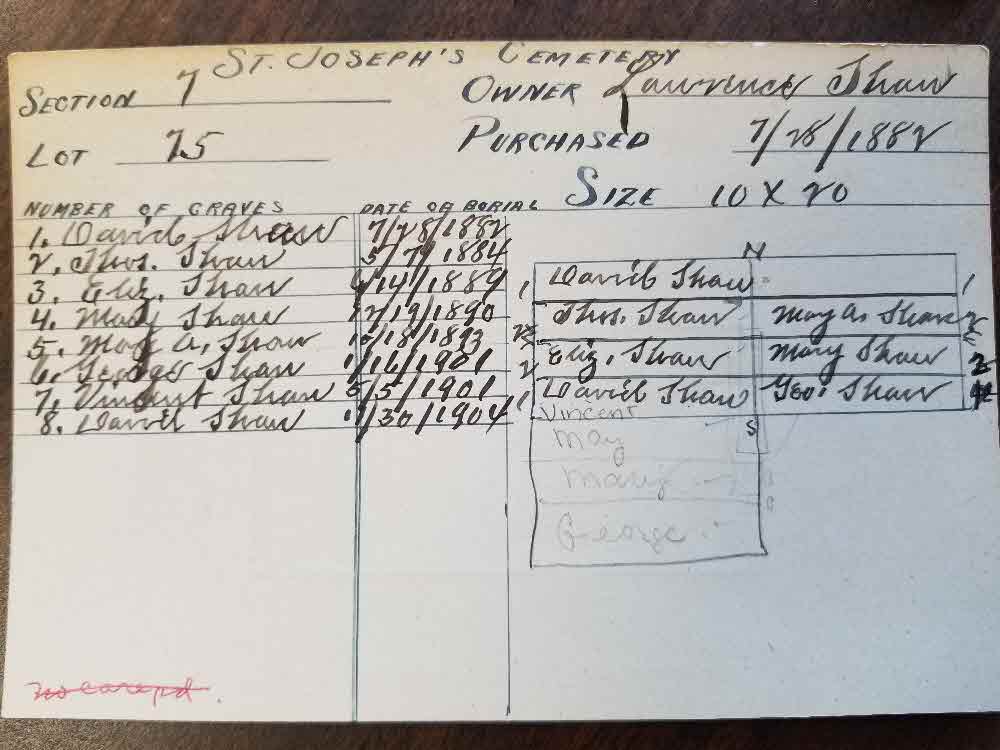 ST. JOSEPH'S CEMETERY
SECTION 7 OWNER Lawrence Shaw
LOT 75 PURCHASED 7/28/1882
SIZE 10 X 20
NUMBER OF GRAVES DATE OF BURIAL
1. David Shaw 7/28/1882
2. Thos. Shaw 5/7/1884
3. Eliz. Shaw /14/1889
4. Mary Shaw 12/19/1890
5. May A. Shaw 10/18/1893
6. George Shaw 1/16/1901
7. Vincent Shaw 5/5/1901
8. David Shaw 1/30/1904
N
1 David Shaw 1
Thos. Shaw May A. Shaw 2
2 Eliz. Shaw Mary Shaw 2
1 David Shaw Geo. Shaw
Vincent
S
May
Mary
George
no care pd.